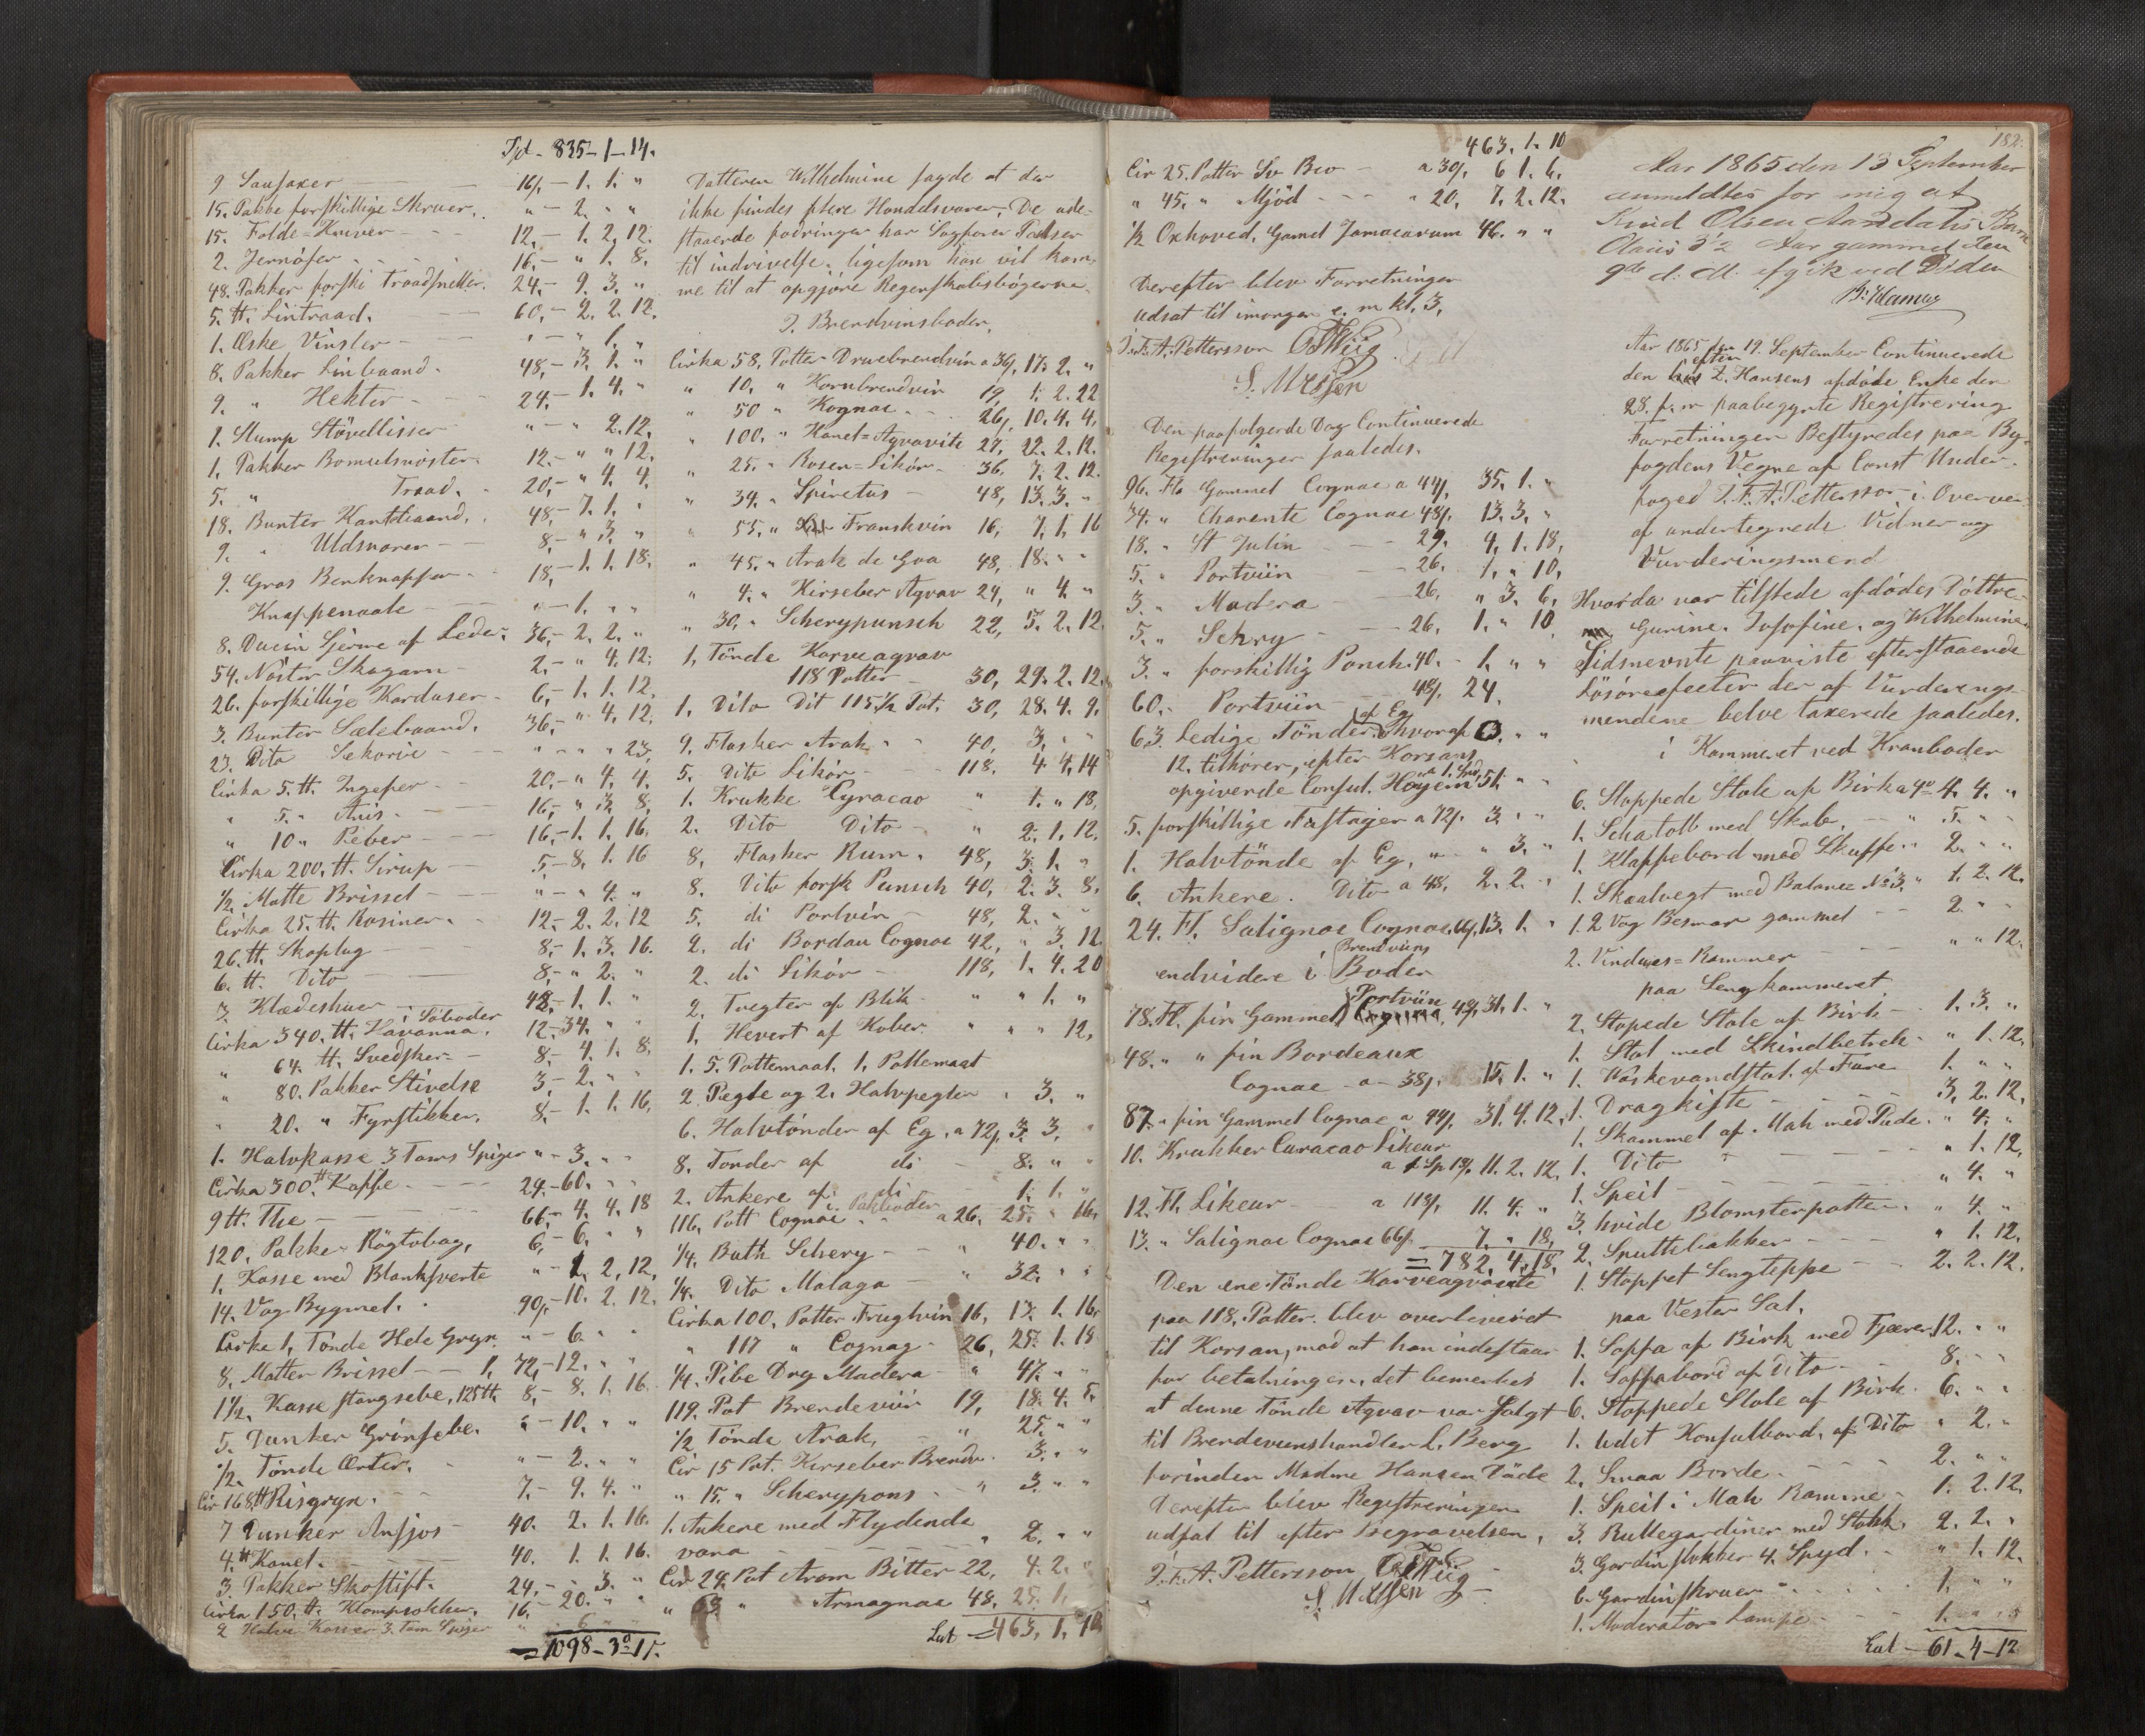 Tpt - 835-1-14.
9 Saufaxer 16/. - 1. 1. "
15. Pakke forskillige Skruer. " - 2. " "
15. Folde-Kniver 12. - 1. 2. 12.
2. Jernöser 16. - " 1. 8.
48. Pakker forskl 24. - 9. 3. "
5. tt. Lintraad. 60. - 2. 2. 12.
1. Æske Vinster " - " 1. "
8. Pakker Linbaand. 48. - 3. 1. "
9. " Hekter 24. - 1. 4. "
1. Slump Stövellisser " - " 2. 12.
1. Pakker Bomulsnöster 12. - " " 12.
5. " Traad. 20. - " 4. 4.
18. Bunter Kantebaand. 48. - 7. 1. "
9. " Uldsnorer 8. - " 3. "
9. Gros Benknapper 18. - 1. 1. 18.
Knappenaale " - 1. " "
8. Dusin Gjerme af Leder 36. - 2. 2. "
54. Nöster Skagarn 2. - " 4. 12.
26. forskillige Karduser 6. - 1. 1. 12.
3. Bunter Sælebaand. 36. - " 4. 12.
23. Dito Sekorie " " " 23.
Cirka 5. tt. Ingefer 20. - " 4. 4.
" 5. " Anis 16. - " 3. 8.
" 10 " Peber 16. - 1. 1. 16.
Cirka 200. tt. Sirup 5. - 8. 1. 16
1/2. Matte Brissel " - " 4. "
Cirka 25. tt. Rosiner. 12. - 2. 2. 12
26. tt. Skoplug 8. - 1. 3. 16.
6. tt. Dito 8. - " 2. "
3. Klædeshuer 48. - 1. 1. "
i Söboder
Cirka 340. tt. Havanna. 12. - 34. " "
" 64. tt. Svedsker 8. - 4. 1. 8.
" 80. Pakker Stivelse 3. - 2. " "
" 20. " Fyrstikker. 8. - 1. 1. 16.
1. Halvkasse 3 Toms Spiger " - 3. " "
Cirka 300. tt Kaffe 24. - 60. " "
9 tt. The 66. - 4. 4. 18
120. Pakker Rögtobag. 6. - 6. " "
1. Kasse med Blanksverte " - 1. 2. 12.
14. Vog Bygmel. 90/. - 10. 2. 12.
Cirka 1, Tönde Hele Gryn. " - 6. " "
8. Matter Brissel 1. 72. - 12. " "
1 1/2. Kasse stangsebe, 125 tt. 8. - 8. 1. 16
5. Dunker Grönsebe. " - 10. " "
1/2. Tönde Erter. " - 2. " "
Cir 168 tt Risgryn. 7. - 9. 4. "
7 Dunker Ansjos 40. 2. 1. 16.
4. tt Kanel. 40. 1. 1. 16.
3. Pakker Skostift. 24. - " 3. "
Cirka 150. tt. 16. - 20. " "
2 Halve Kasser 3. Tom Spiger " 6 " "
= 1098 - 3 - 15.
Datteren Wilhelmine sagde at der
ikke findes flere Handelsvarer. De ude-
staaende fodringer har Sagförer
til indrivelse. ligesom han vil kom-
me til at opgjöre Regenskabsbögerne.
I. Brendvinsboder.
Cirka 58. Potter Druebrendvin a 36/. 17. 2. "
" 10. " Kornbrendvin 19. 1. 2. 22
" 50 " Kognac 26/. 10. 4. 4.
" 100. " Kanel-Aqvavite 27. 22. 2. 12.
" 25. " Rosen-Likör 36. 7. 2. 12.
" 34. " Spiretus 48. 13. 3. "
" 55. " Franskvin 16. 7. 1. 16
" 45. " Arak de Goa 48. 18. " "
" 4. " Kirseber Aqvav 24. " 4. "
" 30. " Scherypunsch 22. 5. 2. 12.
1. Tönde Karveaqvav
118 Potter 30. 29. 2. 12.
1. Dito Dit 115 1/2 Pot. 30. 28. 4. 9.
9. Flasker Arak 40. 3. " "
5. Dito Likör 118. 4 4. 14
1. Krukke Cyracao " 1. " 18.
2. Dito Dito " 2. 1. 12.
8. Flasker Rum. 48. 3. 1. "
8. Dito forsk Punsch 40. 2. 3. 8.
5. di Portvin 48. 2. " "
2. di Bordau Cognac 42. " 3. 12
2. di Likör 118. 1. 4. 20
2. Tregter af Blik " " 1. "
1. Hevert af Kober. " " " 12.
1. 5. Pottemaal. 1. Pottemaal
2. Pegle og 2. Halvpegler " 3. "
6. Halvtönder af Eg. a 72/. 3. 3. "
8. Tönder af di 8. " "
2. Ankere af di 1. 1. "
i Pakboder
116. Pott Cognac a 26. 25. " 16.
1/4. Bath Schery " 40. " "
1/4. Dito Malaga " 32. " "
Cirka 100. Potter Frugtvin 16. 13. 1. 16.
" 117 " Cognag 26. 25. 1. 18
1/4. Pibe Dry Madera " 47. " "
119. Pot Brendeviin 19. 18. 4. 5.
1/2 Tönde Arak. " 25. " "
Cir 15 Pot. Kirseber Brendv. 3. " "
" 15. " Scherypons " 3. " "
1. Ankere med Flydende
vara " 2. " "
Cir 24. Pot Arom Bitter 22. 4. 2. "
" 63. " Armagnac 48. 25. 1. "
Lat = 463. 1. 10
463. 1. 10
Cir 25. Potter Sv Bco a 30/. 6 1. 6.
" 45. " Mjöd " 20. 7. 2. 12.
1/2 Oxhoved. Gamel Jamacarum 46. " "
Derefter blev Forretningen
udsat til imorgen e. m kl. 3.
J. F. A. Pettersson
Den paafölgende Dag Continuerede
Registreringen saaledes.
96. Fla Gammel Cognac a 44/. 35. 1. "
34. " Charente Cognac 48/. 13. 3. "
18. " St Julin 29. 4. 1. 18.
5. " Portviin 26. 1. " 10.
3. " Madera 26. " 3. 6.
5. " Schry 26. 1. " 10
3. " forskillig Ponch. 40. 1. " "
60. " Portviin 48/. 24.
63. Ledige Tönder af Eg hvoraf
12. tilhörer, efter Korsans
opgivende Consul. Höyem 51. " "
5. forskillige Fustager a 72/. 3. " "
1. Halvtönde af Eg. " " 3. "
6. Ankere. Dito a 48. 2. 2. "
24. Fl. Salignac Cognac 66/. 13. 1. "
endvidere i Brendviins Boder
78. Fl. fin Gammel Portviin 48/. 31. 1. "
48. " " fin Bordeaux
Cognac a 38/. 15. 1. "
87. " fin Gammel Cognac a 44/. 31. 4. 12.
10. Krukker Curacao Likeur
a 1 Sp 18/. 11. 2. 12.
12. Fl. Likeur a 118/. 11. 4. "
13. " Salignac Cognac 66/. 7. " 18.
= 782. 4. 18.
Den ene Tönde Karveaqvavite
paa 118. Potter. blev overleveret
til Korsan, mod at han indestaar
for betalningen. det bemerkes
at denne Tönde Aqvav var Solgt
til Brendeviinshandler L. Berg
forinden Madme Hansen Döde
Derefter blev Registreringen
udsat til efter Begravelsen.
J. F. A. Pettersson
182.
Aar 1865 den 13 September
anmeldtes for mig at
Knud Olsen Aandals Barn
Olaus 3 1/2 Aar gammel den
9de d. M. afgik ved Döden
Aar 1865 den 19. September Continuerede
den efter L. Hansens afdöde Enke den
28. f. m paabegynte Registrering
Forretningen Bestyredes paa By-
fogdens Vegne af Const Under-
foged J. F. A. Pettersson i Overver
af undertegnede Vidner og
Vurderingsmend
Hvorda var tilstede afdödes Döttre
Gurine. Josofine. og Wilhelmine
Sidsnevnte paaviste efterstaaende
Lösöreefecter der af Vurderings-
mendene belve taxerede saaledes.
i Kammeret ved Kranboder
6. Stoppede Stole af Birk a 4. 4. "
1. Schatoll med Skab. " 5. " "
1. Klappebord med Skuffe " 2. " "
1. Skaalvegt med Balance No 3. " 1. 2. 12.
1. 2 Vog Besmar gammel 2. " "
2. Vindues-Rammer " " 12.
paa Sengkammeret
2. Stopede Stole af Birk 1. 3. "
1. Stol med Skindbetrek " 1. 12.
1. Vaskevandstol af Fure 1. " "
1. Dragkiste 3. 2. 12.
1. Skammel af Mah med Pude. " 4. "
1. Dito " 1. 12.
1. Speil " 4. "
3 hvide Blomsterpotter. " 4. "
2. Sputtebakker " 1. 12.
1. Stoppet Sengteppe 2. 2. 12.
paa Vester Sal.
1. Soffa af Birk med Fjærer. 12. " "
1. Soffabord af Dito 8. " "
6. Stoppede Stole af Birk. 6. " "
1. Udet Konsulbord. af Dito " 2. "
2. Smaa Borde. 2. " "
1. Speil i Mah Ramme 1. 2. 12.
3. Rullegardiner med Stokk. 2. 2. "
3. Gardinstokker 4. Spyd. " 1. 12.
6. Gardinskruer 1. " "
1. Moderatör Lampe 1. " "
Lat - 61 - 4 - 12